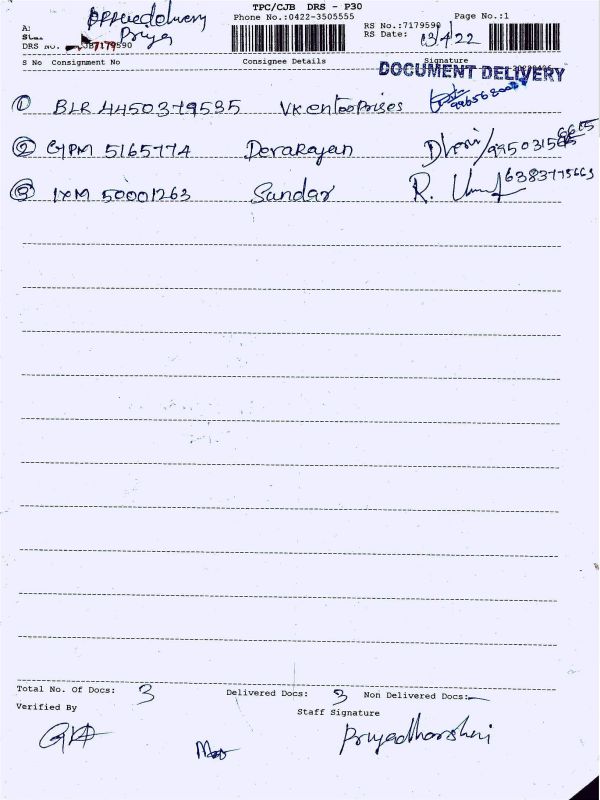 TPC/CJB DRS - P30
Office delivery
Phone No.:0422-3505555
RS No.:7179590
Page No.:1
A:
Priya
RS Date: 13/4/22
DRS No. 7179590
S No Consignment No Consignee Details Signature
DOCUMENT DELIVERY
1 BLR 4450379535 VK enterprises
2 GPM 5165774 Devarajan
3 IXM 50001263 Sundar R. 6383775663
Total No. Of Docs: 3 Delivered Docs: 3 Non Delivered Docs:-
Verified By Staff Signature
Priyadharshini